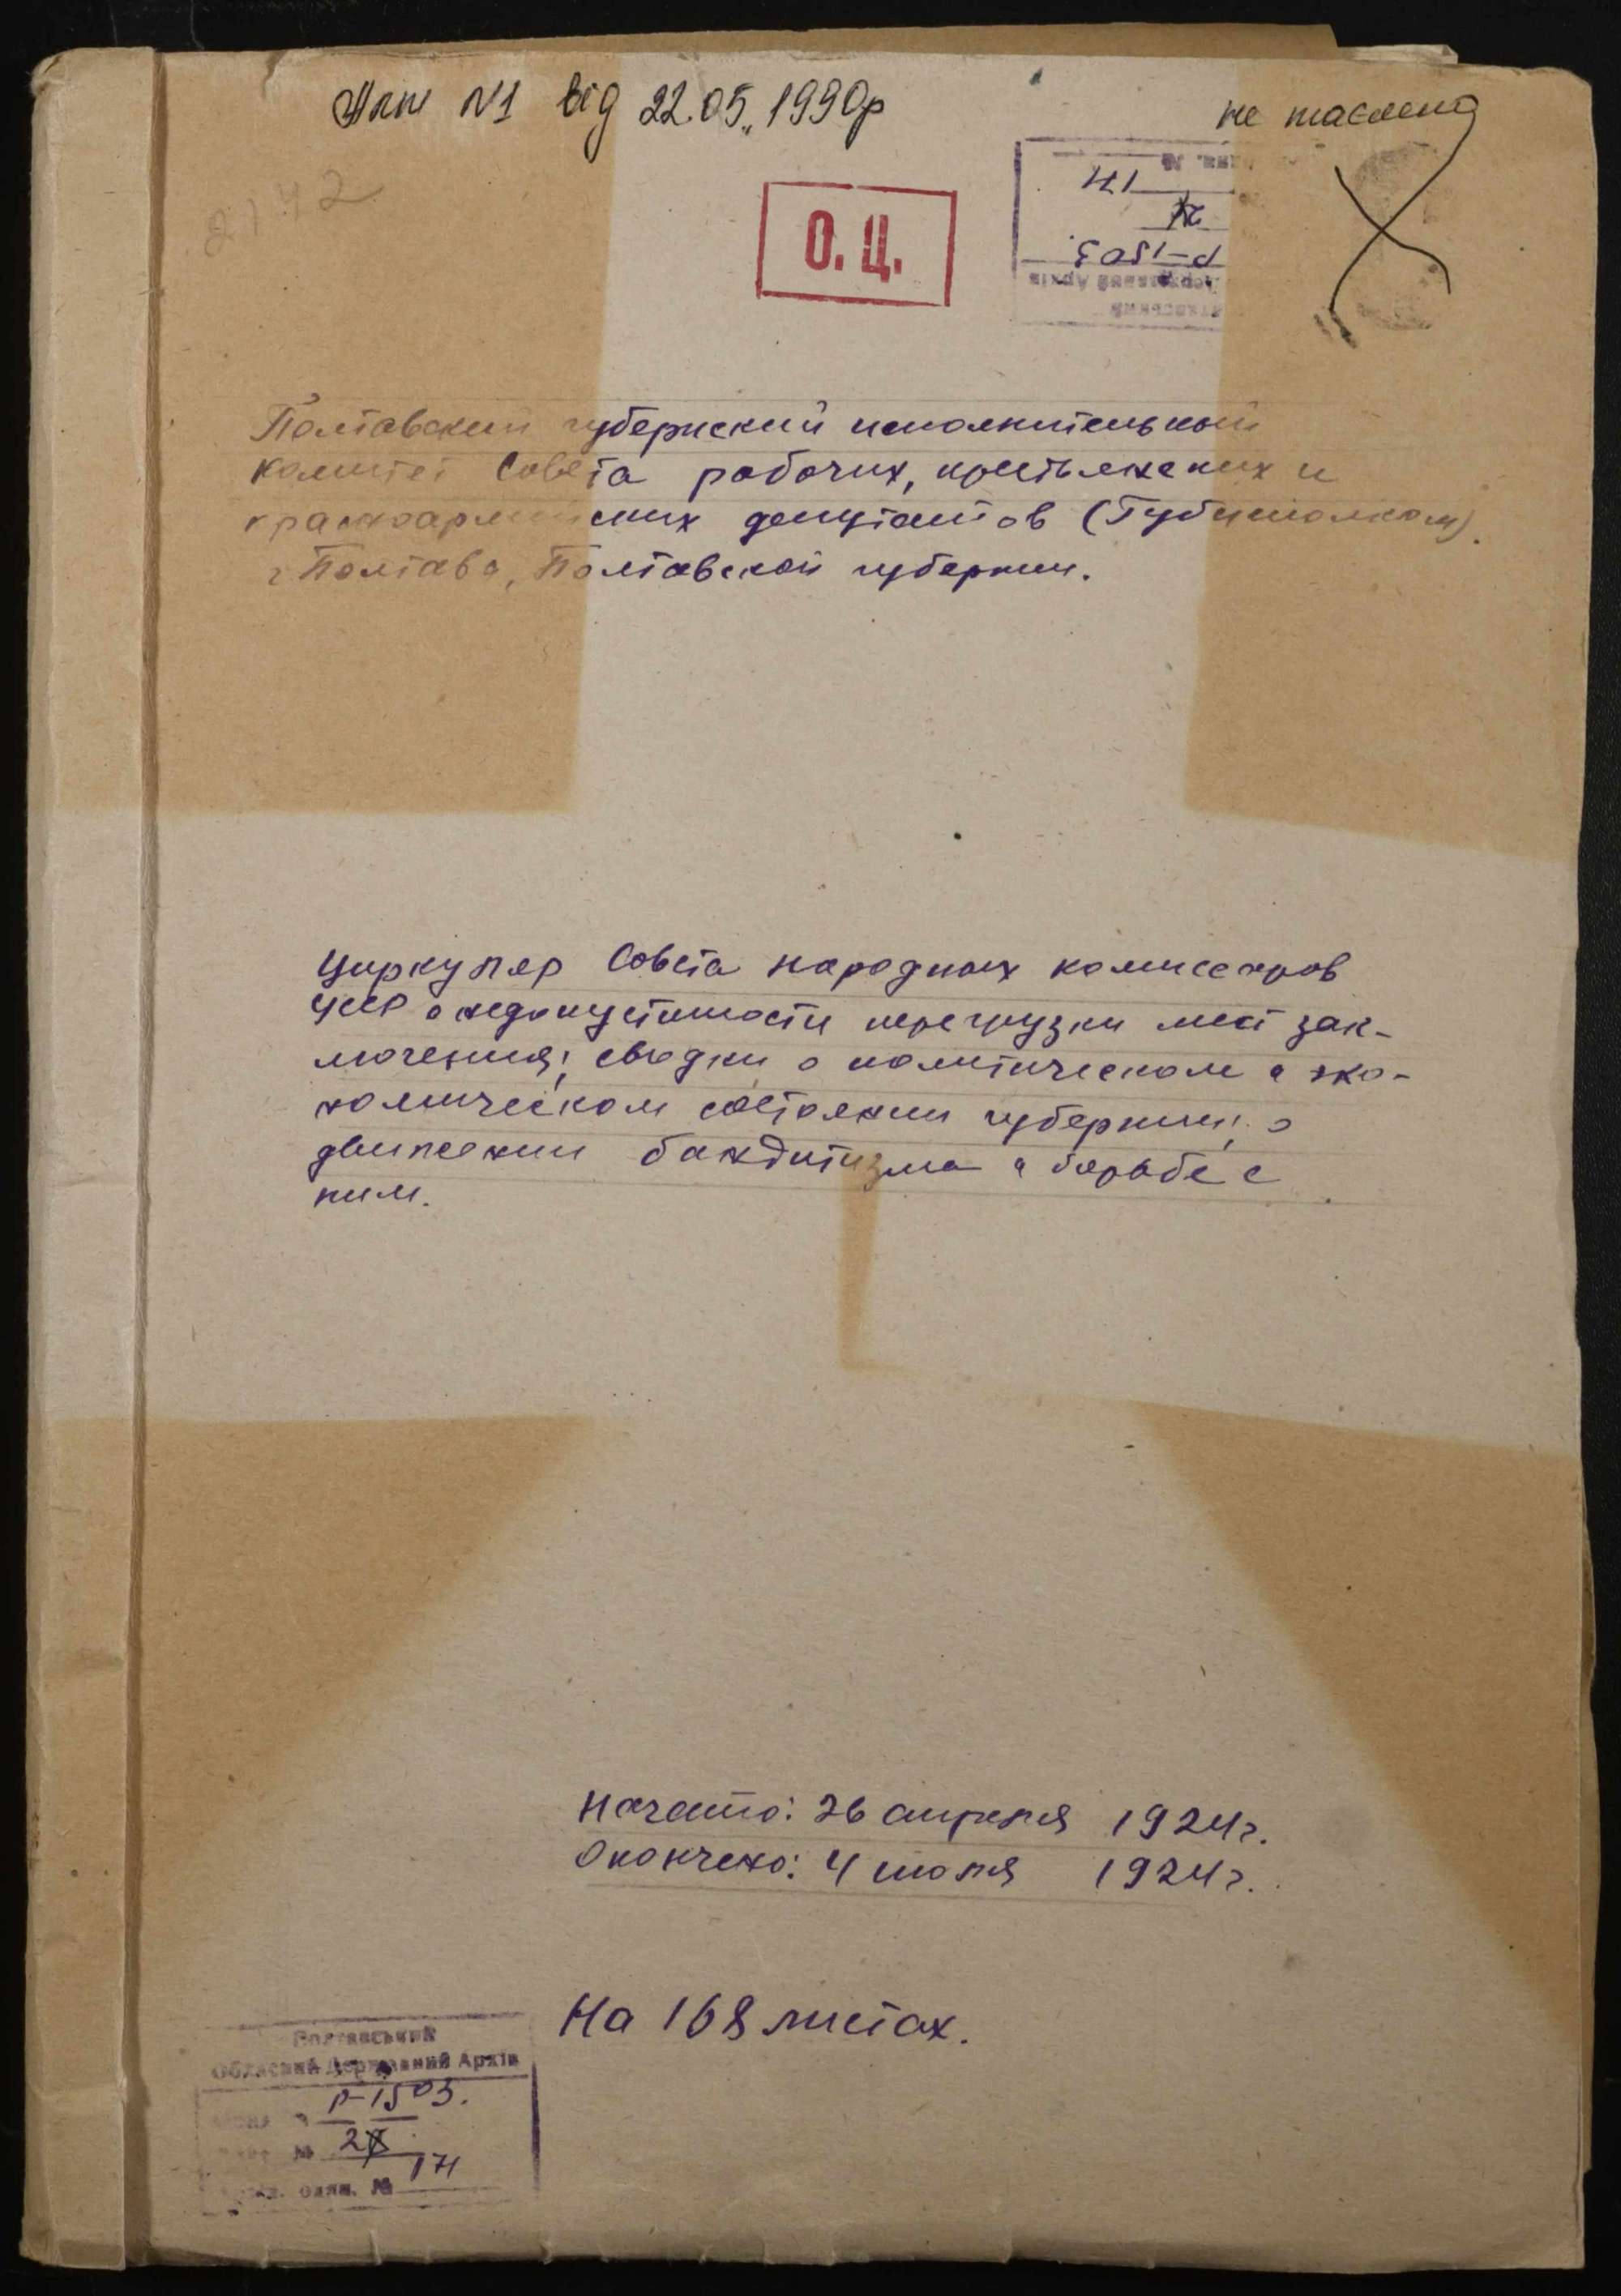 Акт №1 від 22.05.1990р
не таємно
2142
О.Ц.
Р-1503.
Державний Архів
Полтавский губернский исполнительный
комитет Совета рабочих, крестьянских и
красноармейских депутатов (Губисполком).
г. Полтава, Полтавской губернии.
Циркуляр Совета народных комиссаров
УССР о недопустимости перегрузки мест зак-
лючения; сводки о политическом и эко-
номическом состоянии губернии; о
движении бандитизма и борьбе с
ним.
Начато: 26 апреля 1924г.
Окончено: 4 июля 1924г.
На 168 листах.
Полтавський
Обласний Державний Архів
Р-1503.
2
№ 174
одян. №